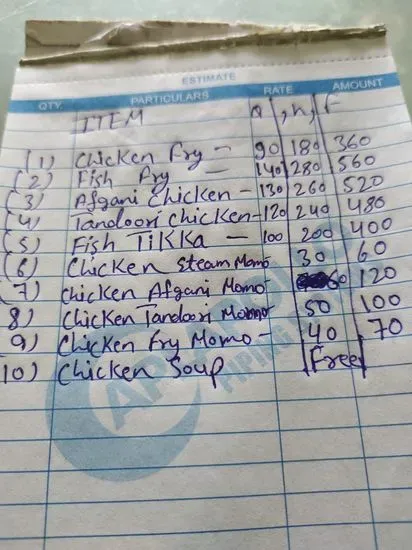 ESTIMATE
QTY. PARTICULARS RATE AMOUNT
ITEM Q, H, F
(1) Chicken Fry - 90 180 360
(2) Fish Fry - 140 280 560
(3) Afgani Chicken - 130 260 520
(4) Tandoori Chicken - 120 240 480
(5) Fish TiKKa - 100 200 400
(6) Chicken Steam Momo 30 60
(7) Chicken Afgani Momo 60 120
8) Chicken Tandoori Momo 50 100
9) Chicken Fry Momo - 40 70
10) Chicken Soup Free